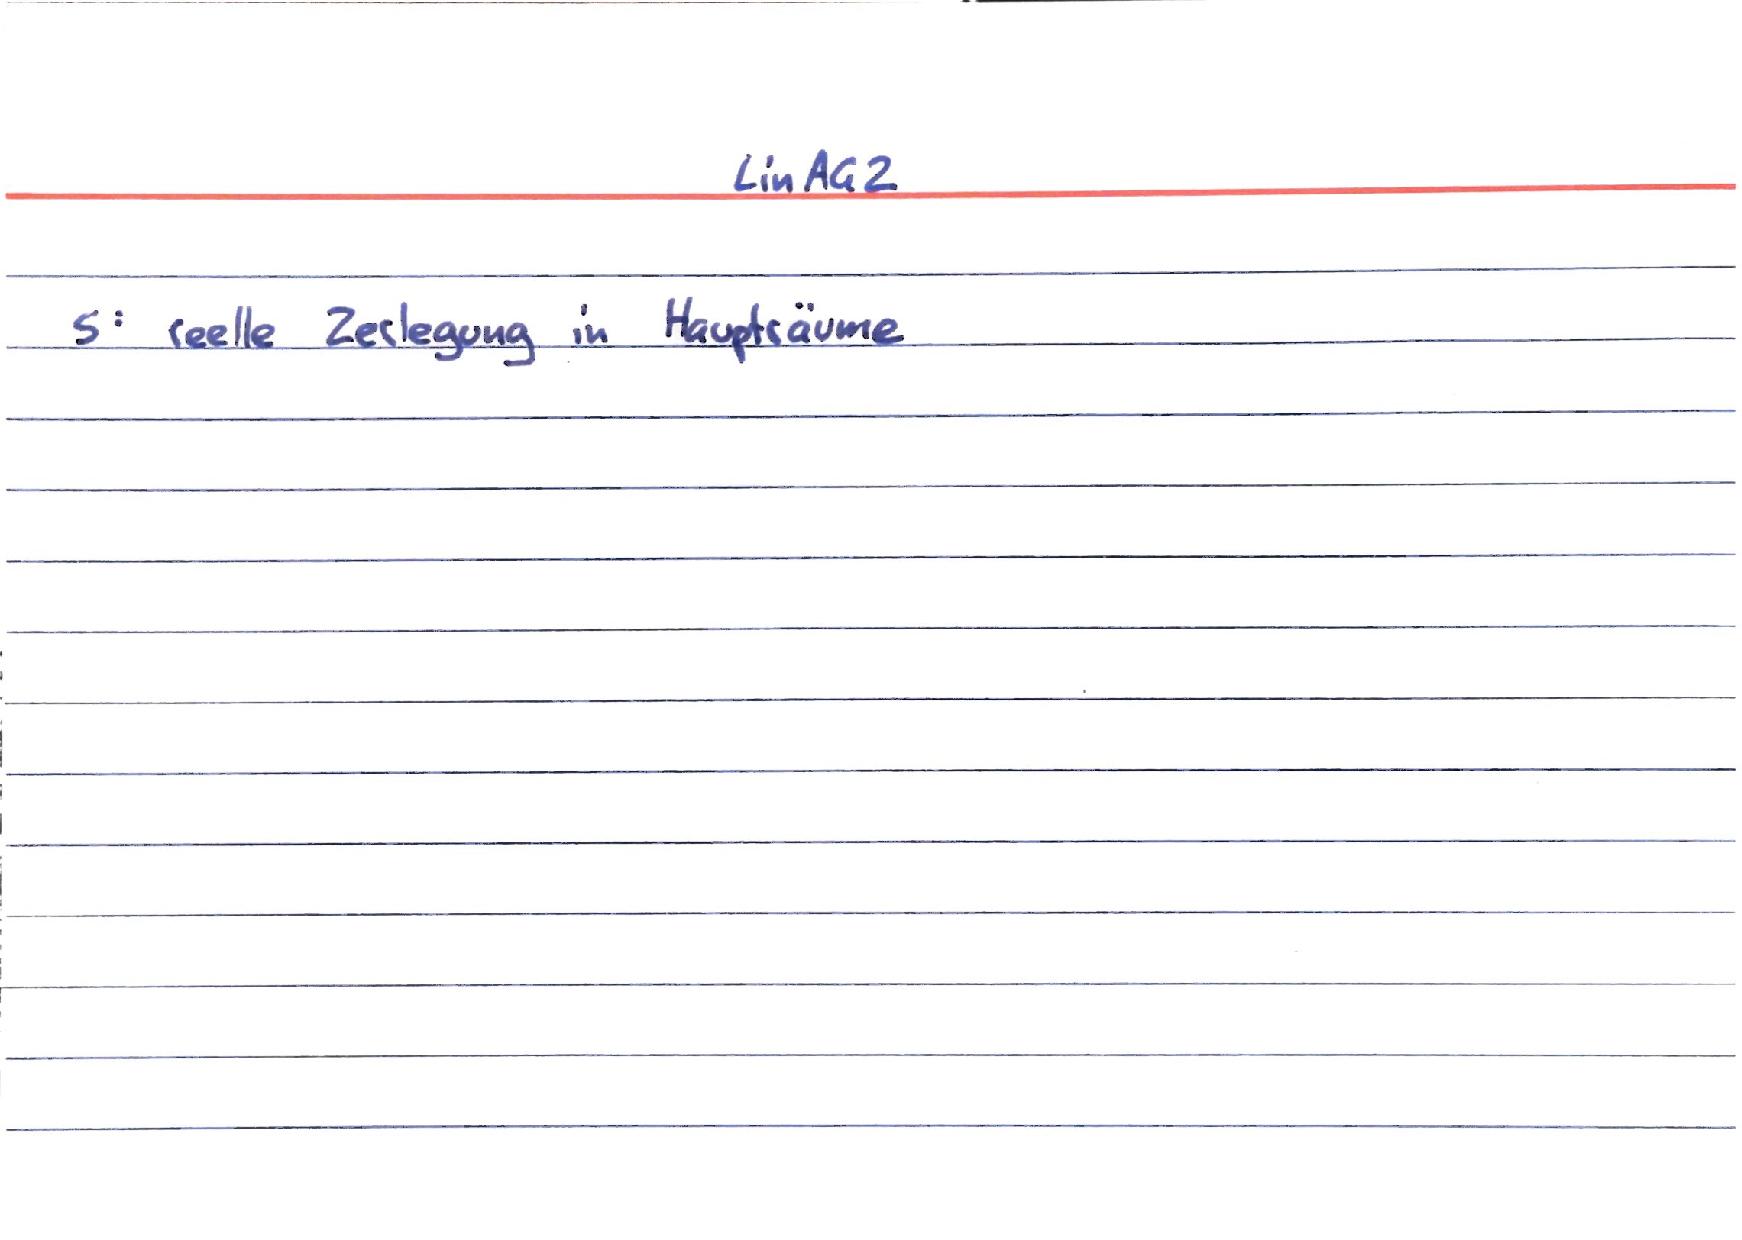 LinAG2
S: reelle Zerlegung in Haupträume